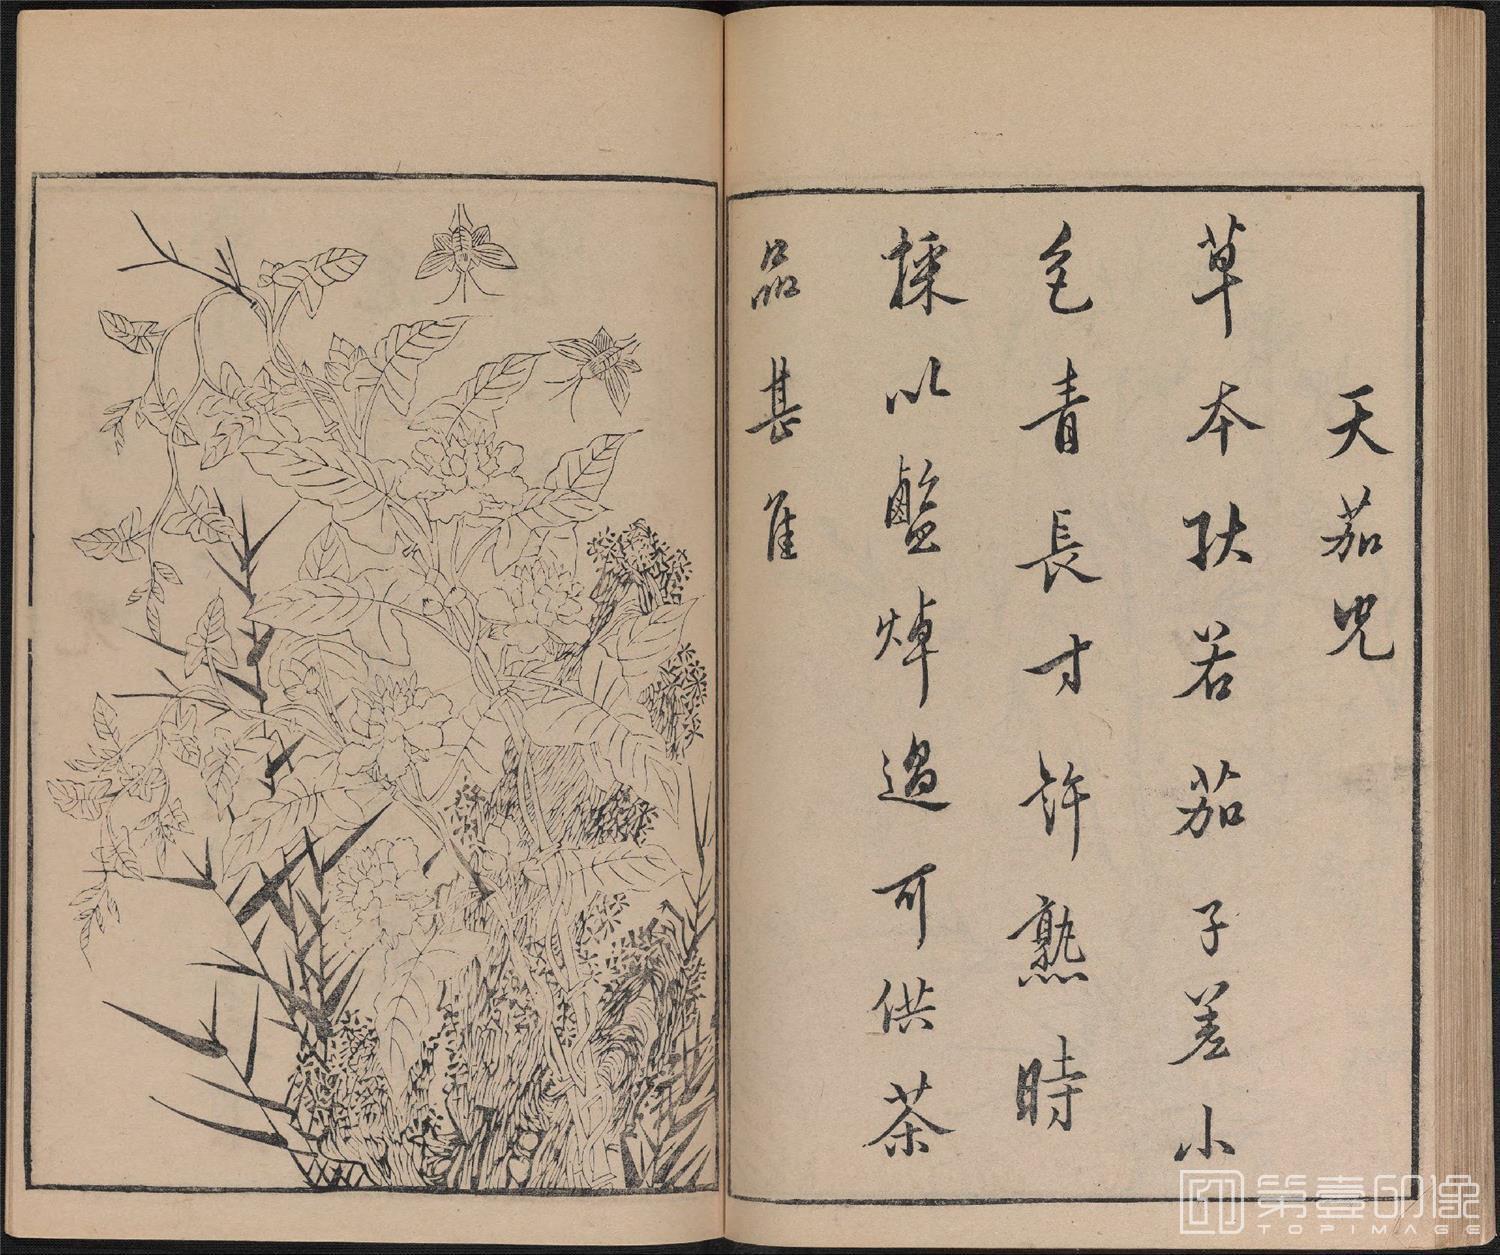 天茄児
草本狀若茄子差小
色青長寸許熟時
採以鹽焯過可供茶
品甚佳
第壹印像
TOPIMAGE